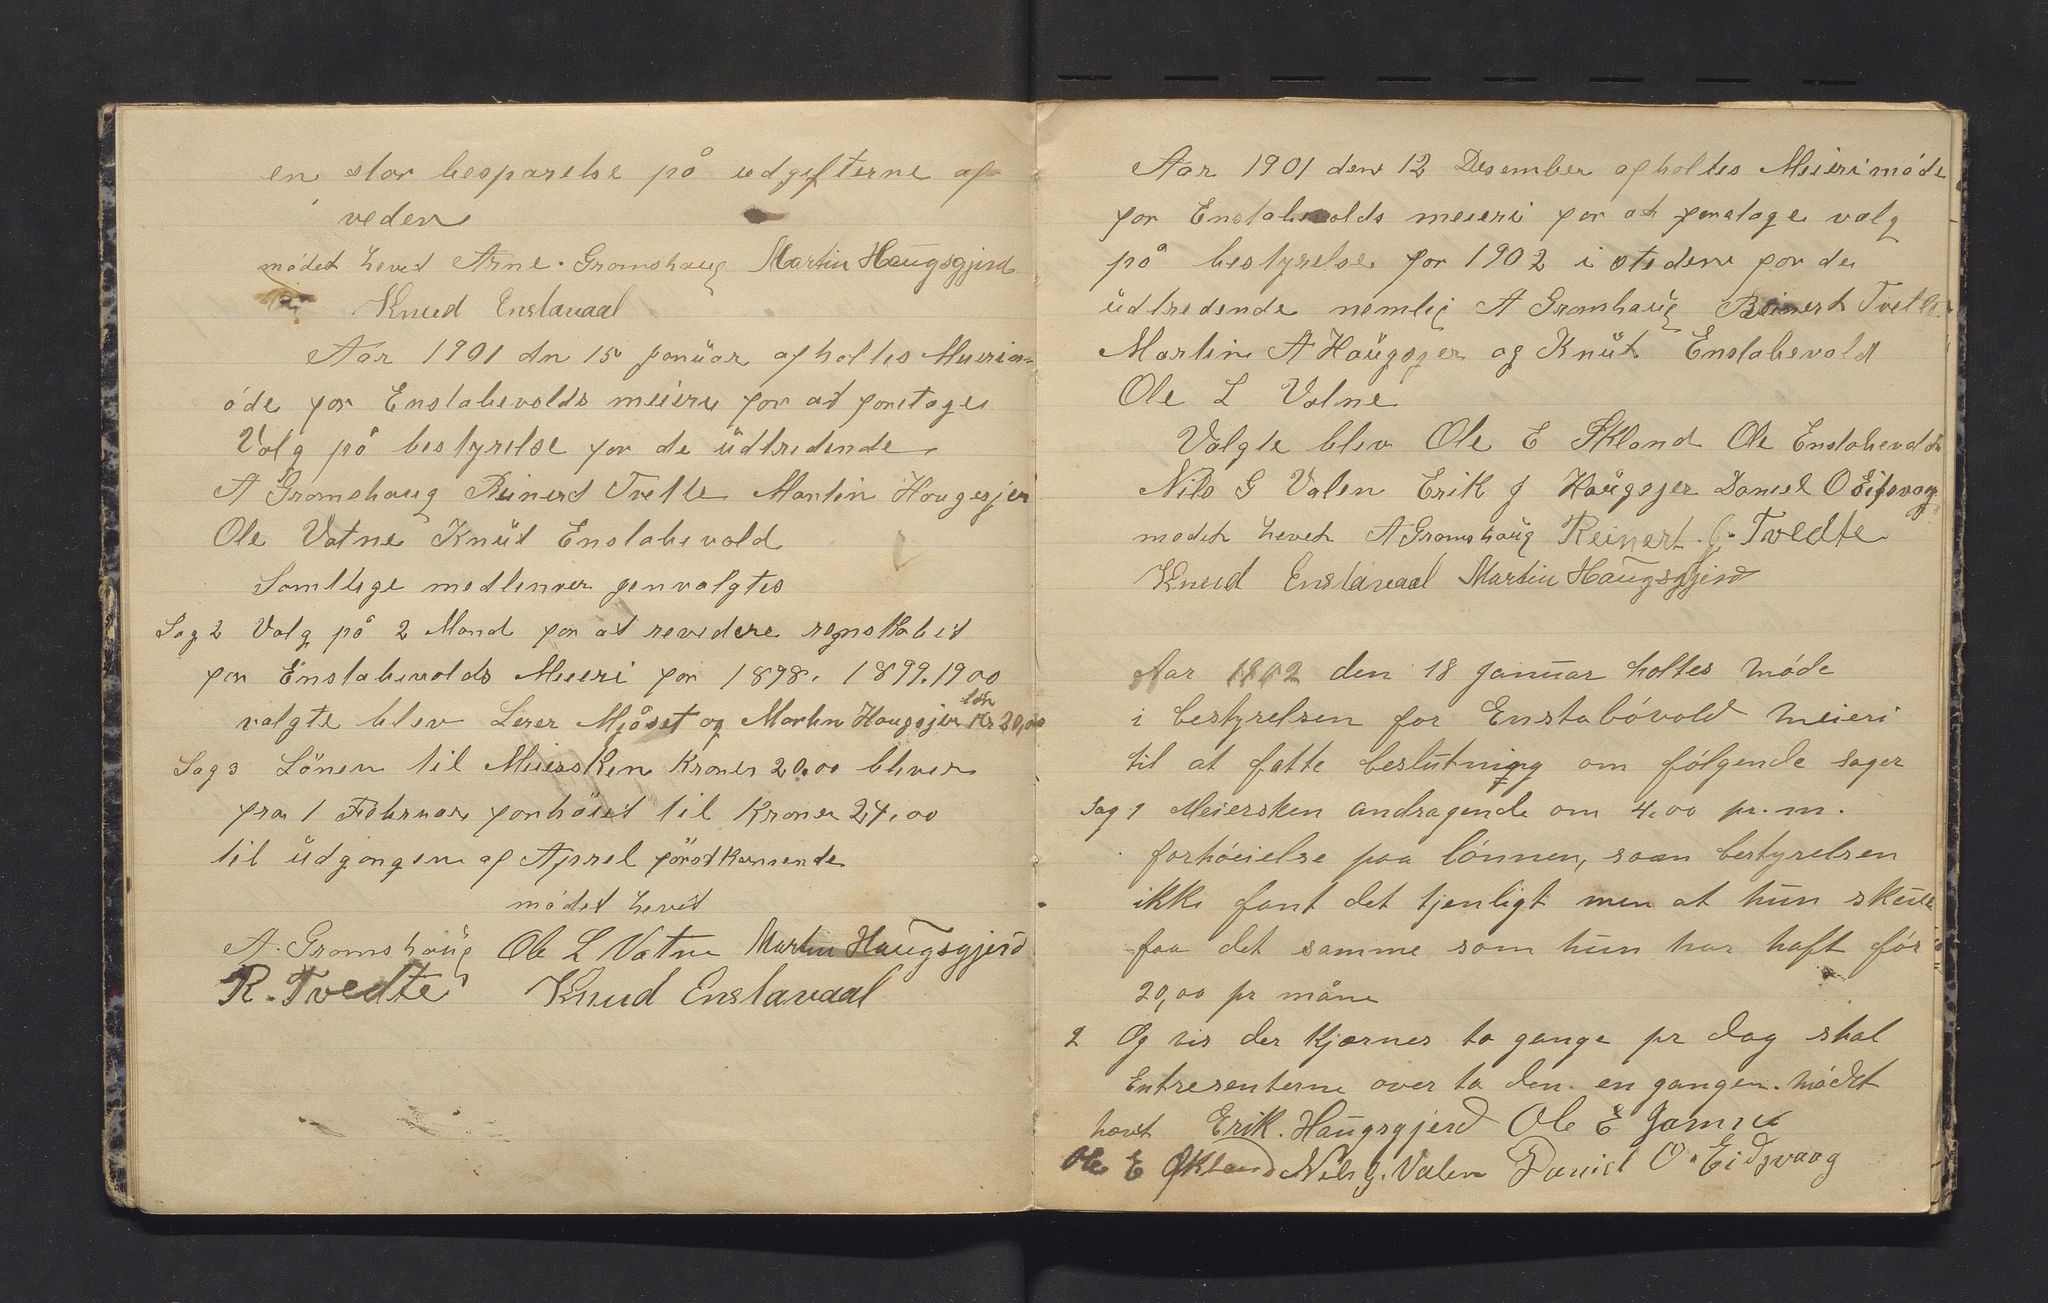 en stor besparelse på udgifterne af
veden
mødet hevet Arne Gromshaug Martin Haugsgjerd
Knud Enstavaal
Aar 1901 dn 15 januar afholtes Meierim-
øde for Enstabevolds meieri for at foretage
Valg på bestyrelse for de udtredende
A Gromshaug Reinert Tvette Martin Hougesjer
Ole Vatne Knut Enstabevold
Samtlige medlemer genvalgtes
Sag 2 Valg på 2 Mand for at revidere regnskabet
for Enstabevolds Meieri for 1898. 1899. 1900
valgte blev Lerer Mjøset og Martin Haugsjer løn Kr 20,00
Sag 3 Lönen til Meiersken Kroner 20.00 bliver
fra 1 Februar forhöiet til Kroner 24.00
til udgangen af Aprel förstkomende
mødet hevet
A. Gromshaug Ole L Vatne Martin Haugsgjerd
R. Tvedte Knud Enstavaal
Aar 1901 den 12 Desember afholtes Meierimøde
for Enstabevolds meieri for at foretage valg
på bestyrelse for 1902 i steden for de
udtredende nemlig A Gromhaug Reinert Tvette
Martin A Haugsjer og Knut Enstabevold
Ole L Vatne
Valgte blev Ole E Økland Ole Enstabevold
Nils G Valen Erik J Haugsjer Daniel O Eidsvag
mødet hevet A Gromshaug Reinert J. Tvedte
Knud Enstavaal Martin Haugsgjerd
Aar 1902 den 18 Januar holtes Møde
i bestyrelsen for Enstabóvold Meieri
til at fatte beslutning om følgende sager
Sag 1 Meiersken andragende om 4,00 pr. m.
forhøielse paa lønnen, saan bestyrelsen
ikke fant det tjenligt men at hun skulle
faa det samme som hun har haft før
20,00 pr måne
2 Og vis der Kjærnes to gange pr Dag skal
Entresenterne over ta den en gangen. Mødet
hævt Erik. Haugsgjerd Ole E Jamne
Ole E Økland Nils G. Valen Daniel O. Eidsvaag